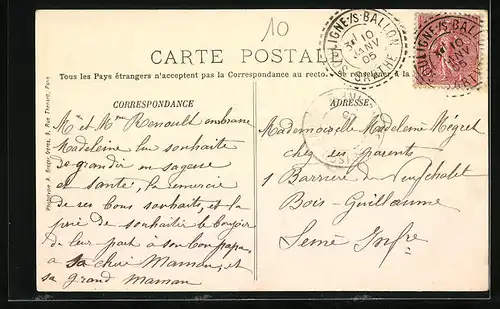 10
CARTE POSTALE
Tous les Pays étrangers n'acceptent pas la Correspondance au recto. Se renseigner à la
SOULIGNÉ S/S BALLON
3E 10
JANV
05
SARTHE
SOULIGNÉ S/S BALLON
10
JANV
05
CORRESPONDANCE
Mr et Mme Renoult embrasse
Madeleine lui souhaite
de grandir en sagesse
et santé, la remercie
de ses bons souhaits, et la
prie de souhaiter le bonjour
de leur part à son bon papa,
à sa chère Maman, et
sa grand maman
ADRESSE
Mademoiselle Madeleine Mégret
chez ses parents
1 Barrière de Neufchatel
Bois-Guillaume
Seine Infre